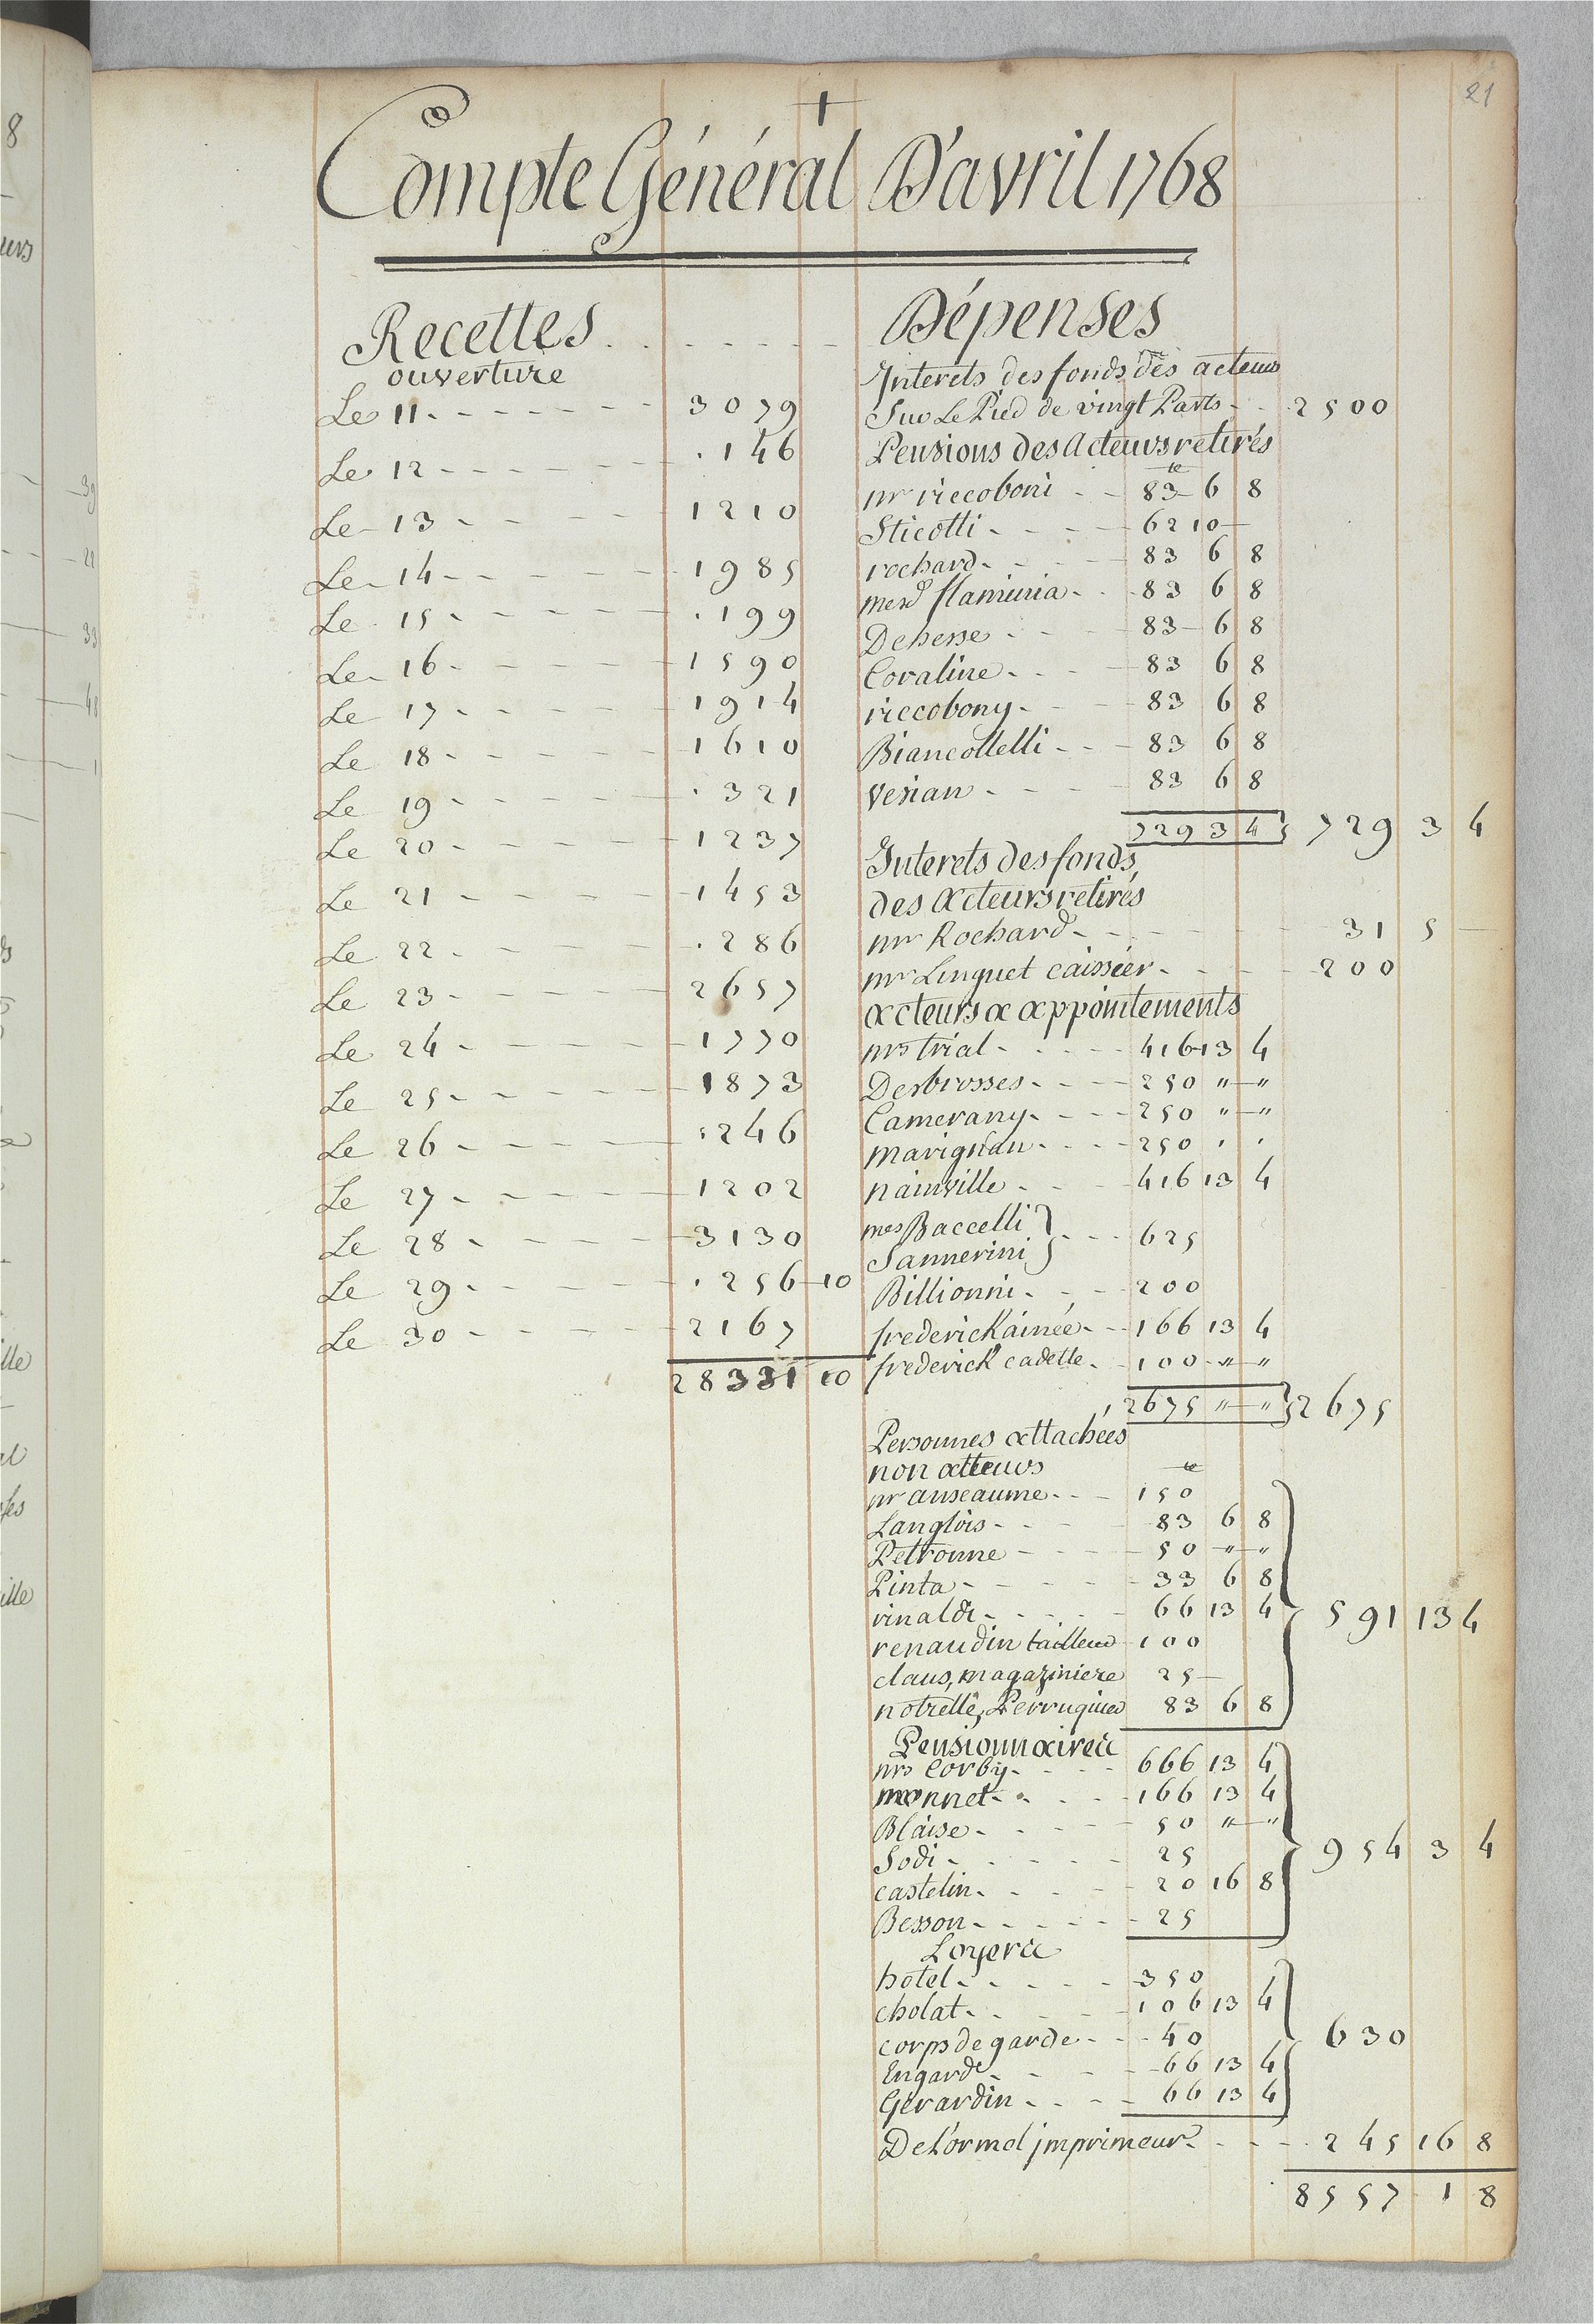 21
Compte Général D'avril 1768
Recettes
ouverture
Le 11 3079
Le 12 146
Le 13 1210
Le 14 1985
Le 15 199
Le 16 1590
Le 17 1914
Le 18 1610
Le 19 321
Le 20 1237
Le 21 1453
Le 22 286
Le 23 2657
Le 24 1770
Le 25 1873
Le 26 246
Le 27 1202
Le 28 3130
Le 29 256 10
Le 30 2167
28331 10
Dépenses
Interets des fonds des acteurs
Sur Le Pied de vingt Parts 2500
Pensions des Acteurs retirés
mr riccoboni 83 6 8
Sticotti 62 10
rochard 83 6 8
mesd flaminia 83 6 8
Dehesse 83 6 8
Coraline 83 6 8
riccobony 83 6 8
Biancollelli 83 6 8
Vesian 83 6 8
729 3 4 729 3 4
Interets des fonds
des acteurs retirés
mr Rochard 31 5
mr Linguet caissier 200
acteurs a appointements
mrs trial 416 13 4
Desbrosses 250 " "
Camerany 250 " "
marignan 250 ' '
nainville 416 13 4
mes Baccelli
Sannerini 625
Billionni 200
frederick ainée 166 13 4
frederick cadette 100 " "
2675 " " 2675
Personnes attachées
non acteurs
mr anseaume 150
Langlois 83 6 8
Petronne 50 " "
Pinta 33 6 8
rinaldi 66 13 4
renaudin tailleur 100
claus, magaziniere 25
notrelle, Perruquier 83 6 8
591 13 4
Pensionnaires
mrs Corby 666 13 4
monnet 166 13 4
Blaise 50 " "
Sodi 25
castelin 20 16 8
Besson 25
954 3 4
Loyers
hotel 350
cholat 106 13 4
corps de garde 40
Engard 66 13 4
Gerardin 66 13 4
630
De Lormel jmprimeur 245 16 8
8557 1 8